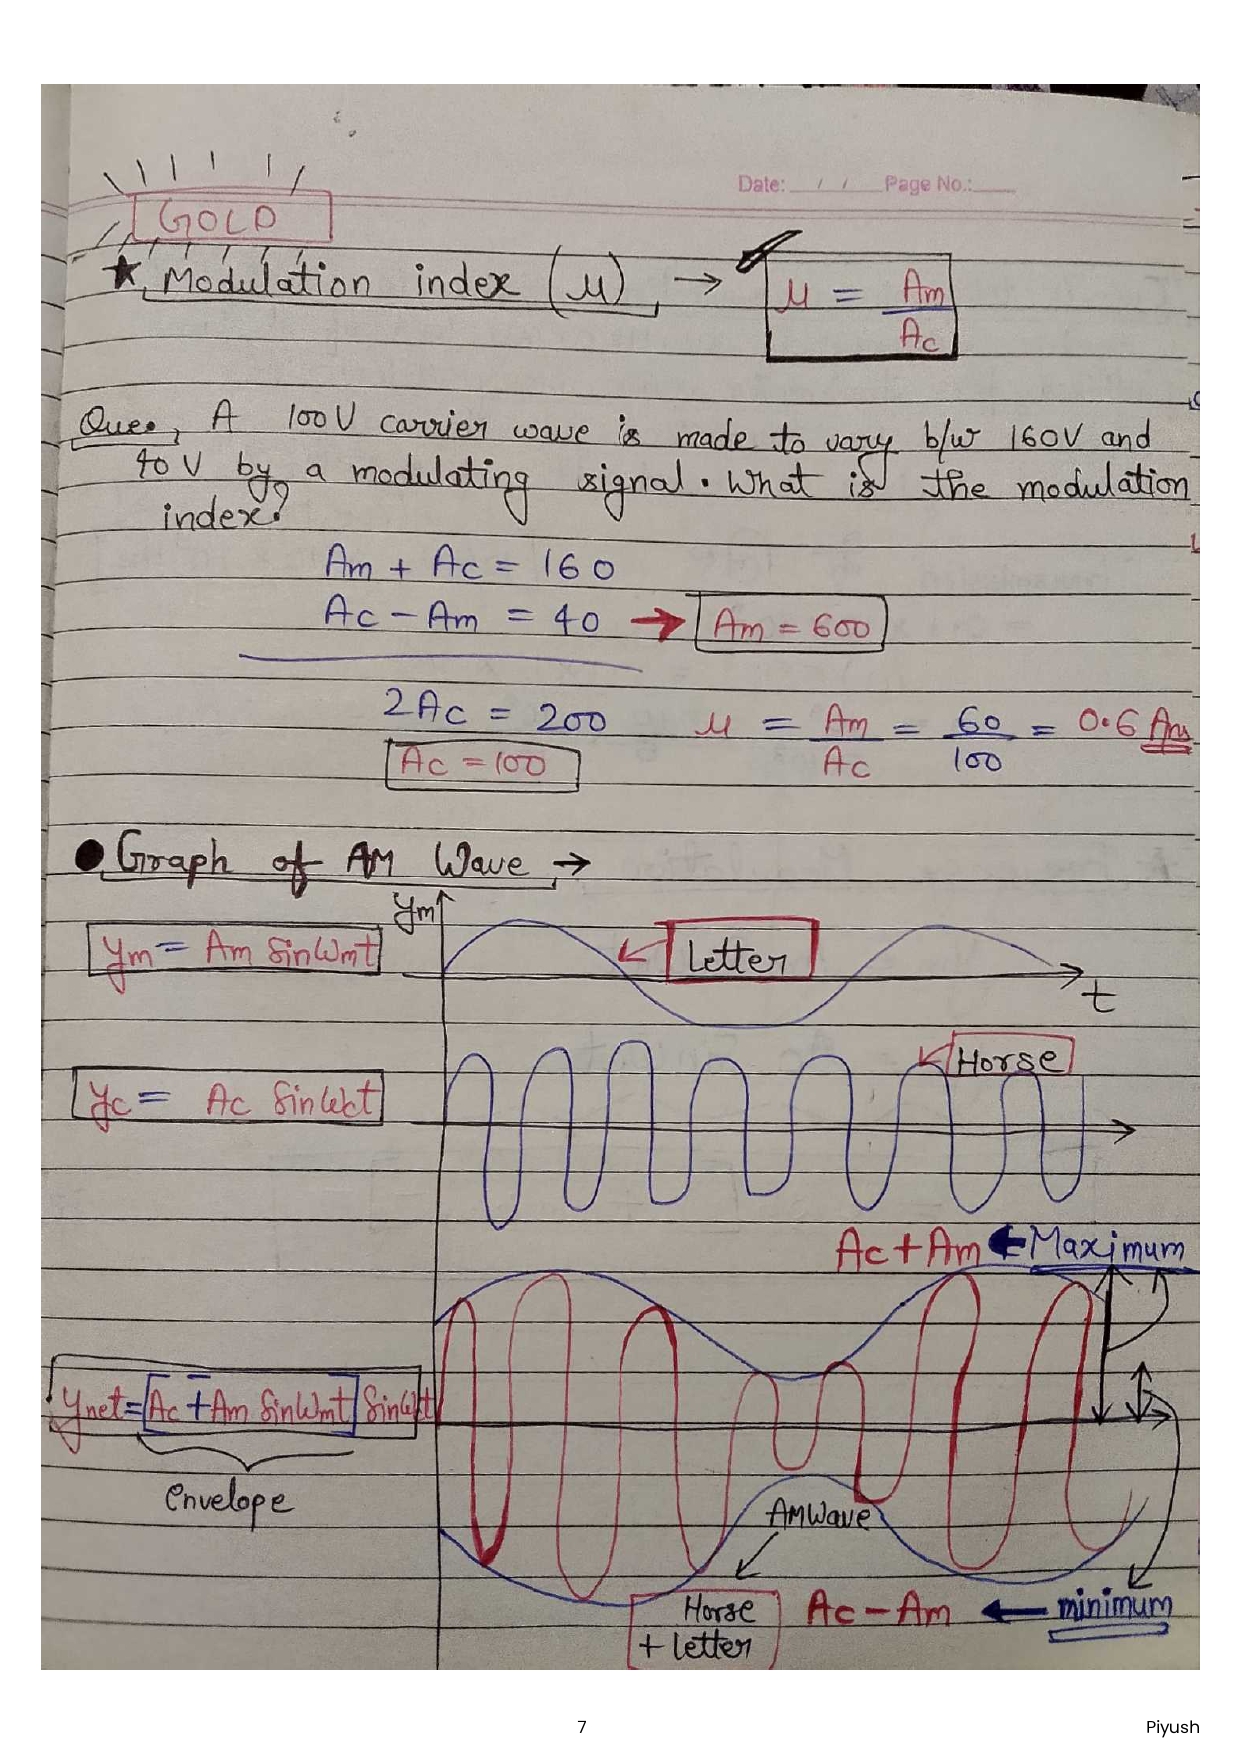 Date: / / Page No.:
GOLD
★ Modulation index (μ) → μ = Am/Ac
Ques, A 100V carrier wave is made to vary b/w 160V and
40V by a modulating signal. What is the modulation
index?
Am + Ac = 160
Ac - Am = 40 → Am = 600
2Ac = 200 μ = Am/Ac = 60/100 = 0.6 Ans
Ac = 100
● Graph of AM Wave →
ym
ym = Am Sinωmt
Letter
t
Horse
yc = Ac Sinωct
Ac + Am ← Maximum
ynet = [Ac + Am Sinωmt] Sinωct
envelope
AM Wave
Horse
+ letter
Ac - Am ← minimum
7
Piyush